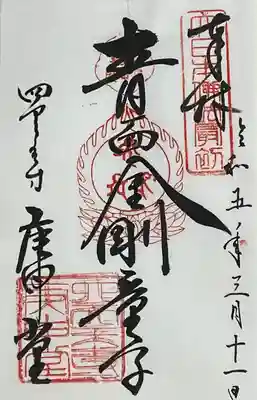 奉拝
令和五年三月十一日
青面金剛童子
四天王寺
庚申堂